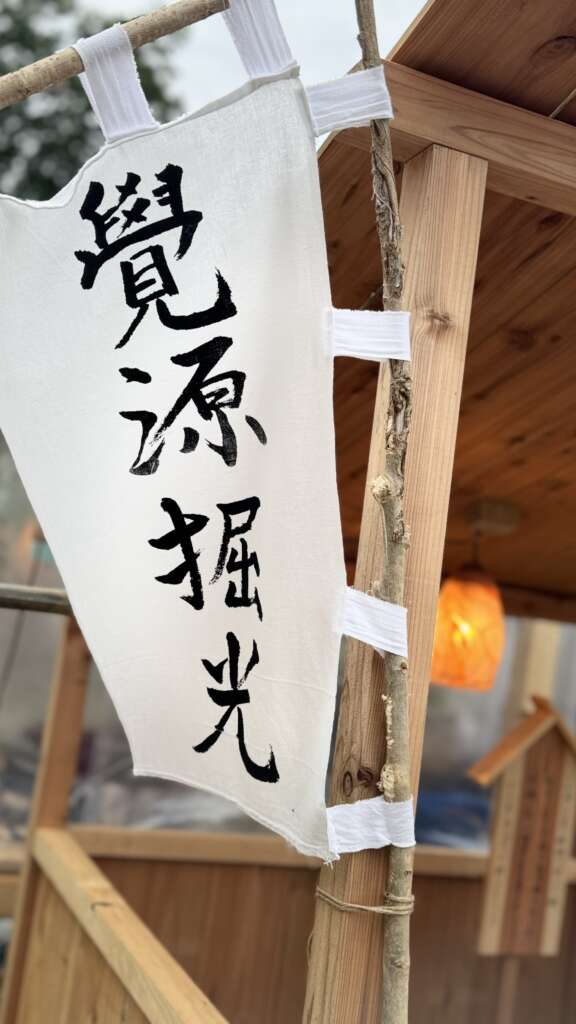 覺源掘光